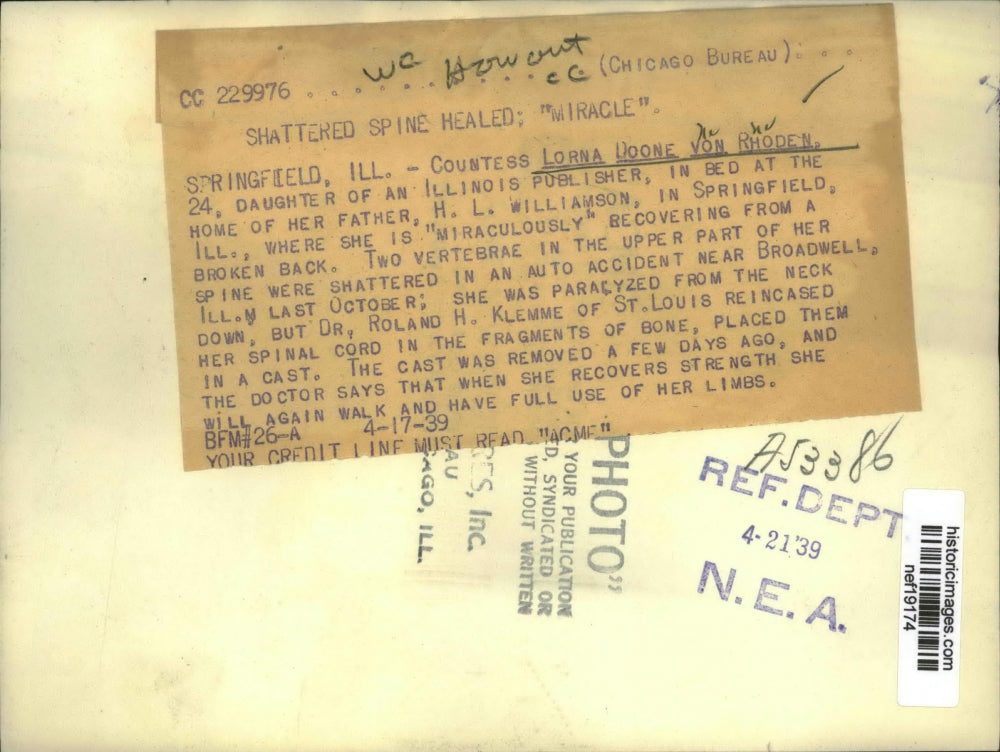 CC 229976 . . . . . . . . . . . . (CHICAGO BUREAU). . . .
SHATTERED SPINE HEALED; "MIRACLE".
SPRINGFIELD, ILL. - COUNTESS LORNA DOONE VON RHODEN,
24, DAUGHTER OF AN ILLINOIS PUBLISHER, IN BED AT THE
HOME OF HER FATHER, H. L. WILLIAMSON, IN SPRINGFIELD,
ILL., WHERE SHE IS "MIRACULOUSLY" RECOVERING FROM A
BROKEN BACK. TWO VERTEBRAE IN THE UPPER PART OF HER
SPINE WERE SHATTERED IN AN AUTO ACCIDENT NEAR BROADWELL,
ILL. LAST OCTOBER; SHE WAS PARALYZED FROM THE NECK
DOWN, BUT DR. ROLAND H. KLEMME OF ST.LOUIS REINCASED
HER SPINAL CORD IN THE FRAGMENTS OF BONE, PLACED THEM
IN A CAST. THE CAST WAS REMOVED A FEW DAYS AGO, AND
THE DOCTOR SAYS THAT WHEN SHE RECOVERS STRENGTH SHE
WILL AGAIN WALK AND HAVE FULL USE OF HER LIMBS.
BFM#26-A 4-17-39
YOUR CREDIT LINE MUST READ "ACME"
PHOTO"
YOUR PUBLICATION
D, SYNDICATED OR
WITHOUT WRITTEN
ES, Inc.
AU
AGO, ILL.
A53386
REF. DEPT
4-21'39
N.E.A.
historicimages.com
nef19174